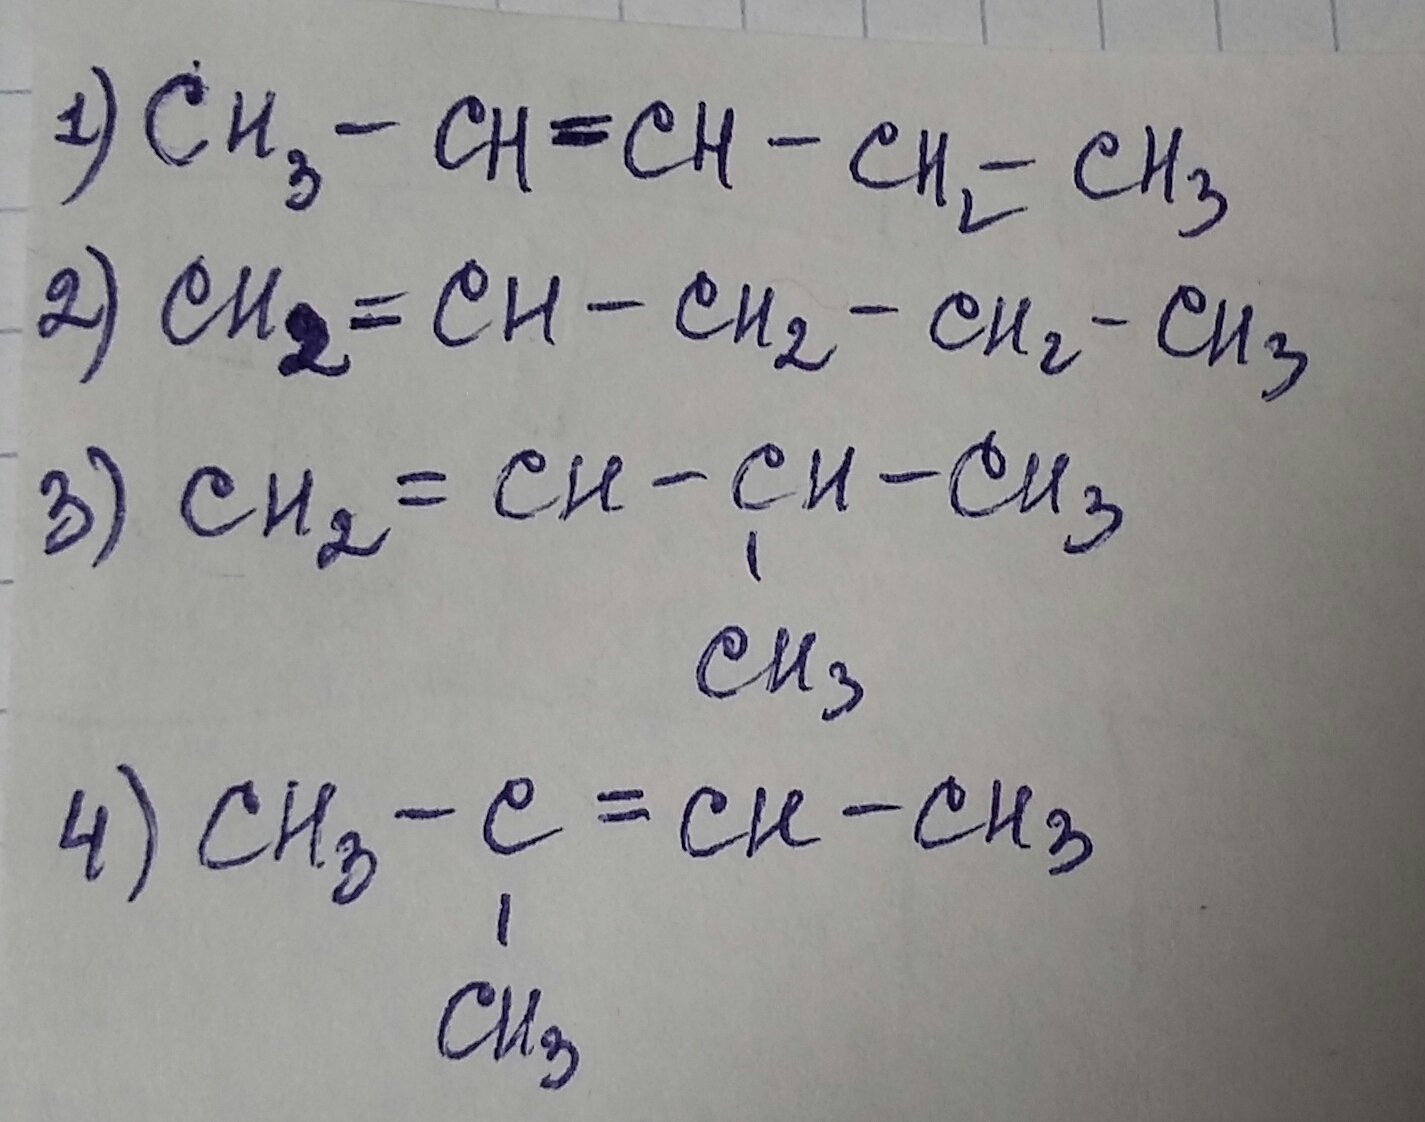 1) CH₃ - CH = CH - CH₂ - CH₃
2) CH₂ = CH - CH₂ - CH₂ - CH₃
3) CH₂ = CH - CH - CH₃
|
CH₃
4) CH₃ - C = CH - CH₃
|
CH₃